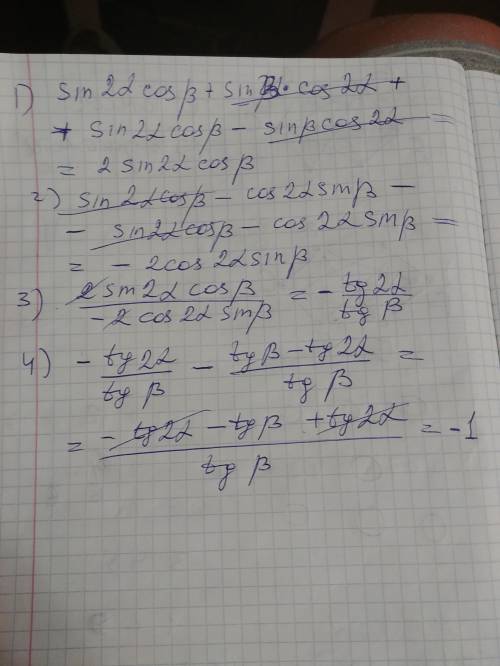 1) sin 2α cos β + sin β · cos 2α +
+ sin 2α cos β − sin β cos 2α =
= 2 sin 2α cos β
2) sin 2α cos β − cos 2α sin β −
− sin 2α cos β − cos 2α sin β =
= − 2 cos 2α sin β
3) 2 sin 2α cos β / − 2 cos 2α sin β = − tg 2α / tg β
4) − tg 2α / tg β − tg β − tg 2α / tg β =
= − tg 2α − tg β + tg 2α / tg β = −1